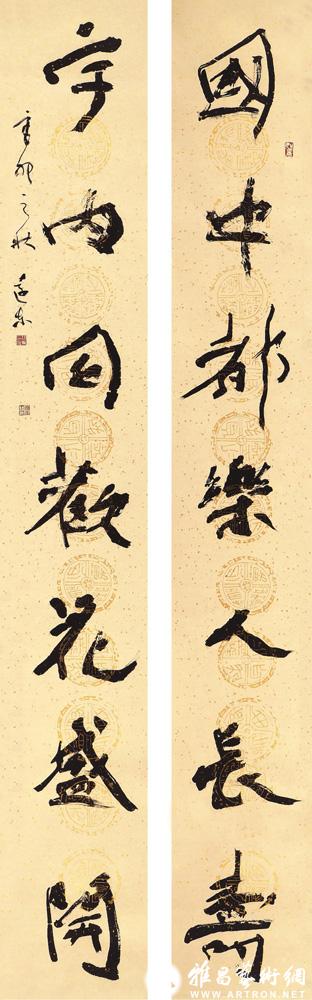 國中都樂人長壽
宇内同歡花盛開
辛卯之秋
雅昌藝術網
WWW.ARTRON.NET